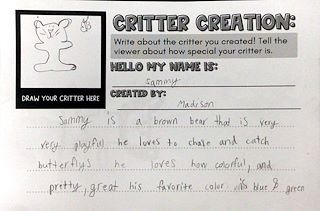 CRITTER CREATION:
Write about the critter you created! Tell the
viewer about how special your critter is.
HELLO MY NAME IS:
Sammy
CREATED BY:
Madison
DRAW YOUR CRITTER HERE
Sammy is a brown bear that is very
very playful he loves to chase and catch
butterflys he loves how colorful, and
pretty, great his favorite color is blue & green